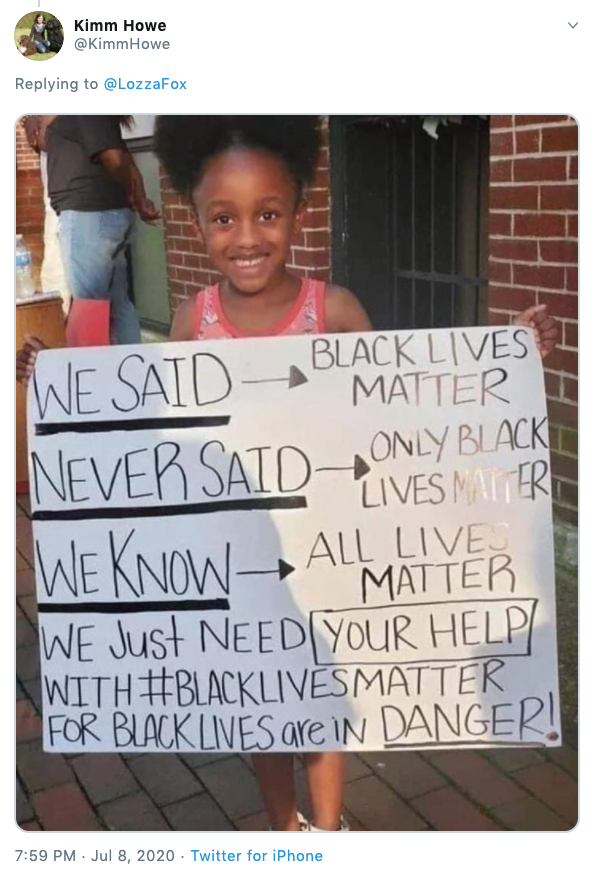 Kimm Howe
@KimmHowe
Replying to @LozzaFox
WE SAID → BLACK LIVES
MATTER
NEVER SAID → ONLY BLACK
LIVES MATTER
WE KNOW → ALL LIVES
MATTER
WE Just NEED YOUR HELP
WITH #BLACKLIVESMATTER
FOR BLACK LIVES are iN DANGER!
7:59 PM · Jul 8, 2020 · Twitter for iPhone